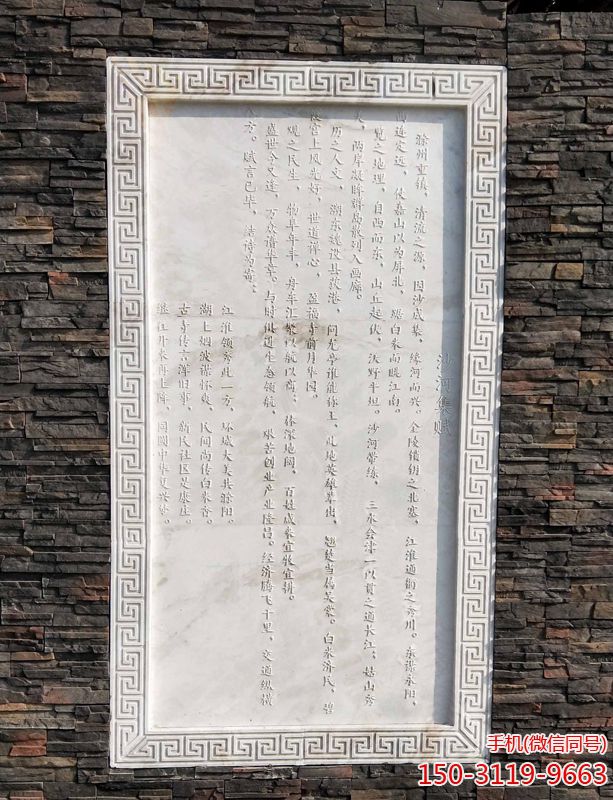 沙河集赋
滁州重镇，清流之源，因沙成集，缘河而兴。金陵锁钥之北塞，江淮通衢之秀川。东濮永阳，
西连定远，依嘉山以为屏北，踞白米而眺江南。
览之地理，自西而东，山丘起伏，沃野平坦。沙河带练，三水会津一以贯之通长江，姑山秀
美，两岸凝眸群岛散列入画廊。
历之人文，湖东魏设县筑港，问龙亭谁能称王，此地英雄辈出，翘楚当属吴棠。白米济民，碧
霞宫上风光好，世道禅心，盈福寺前月华圆。
观之民生，物阜年丰，舟车汇聚以航以商，林深地阔，百姓咸乘宜牧宜耕。
盛世今又逢，万众谱华章。与时俱进生态领航，艰苦创业产业隆昌。经济腾飞千里，交通纵横
八方。赋言已毕，结诗为寄。
江淮领秀此一方，环城大美其滁阳。
湖上烟波谋怀爽，民间尚传白米香。
古寺传言浑旧事，新民社区是康庄。
继往开来再上阵，同圆中华复兴梦。
手机(微信同号)
150-3119-9663